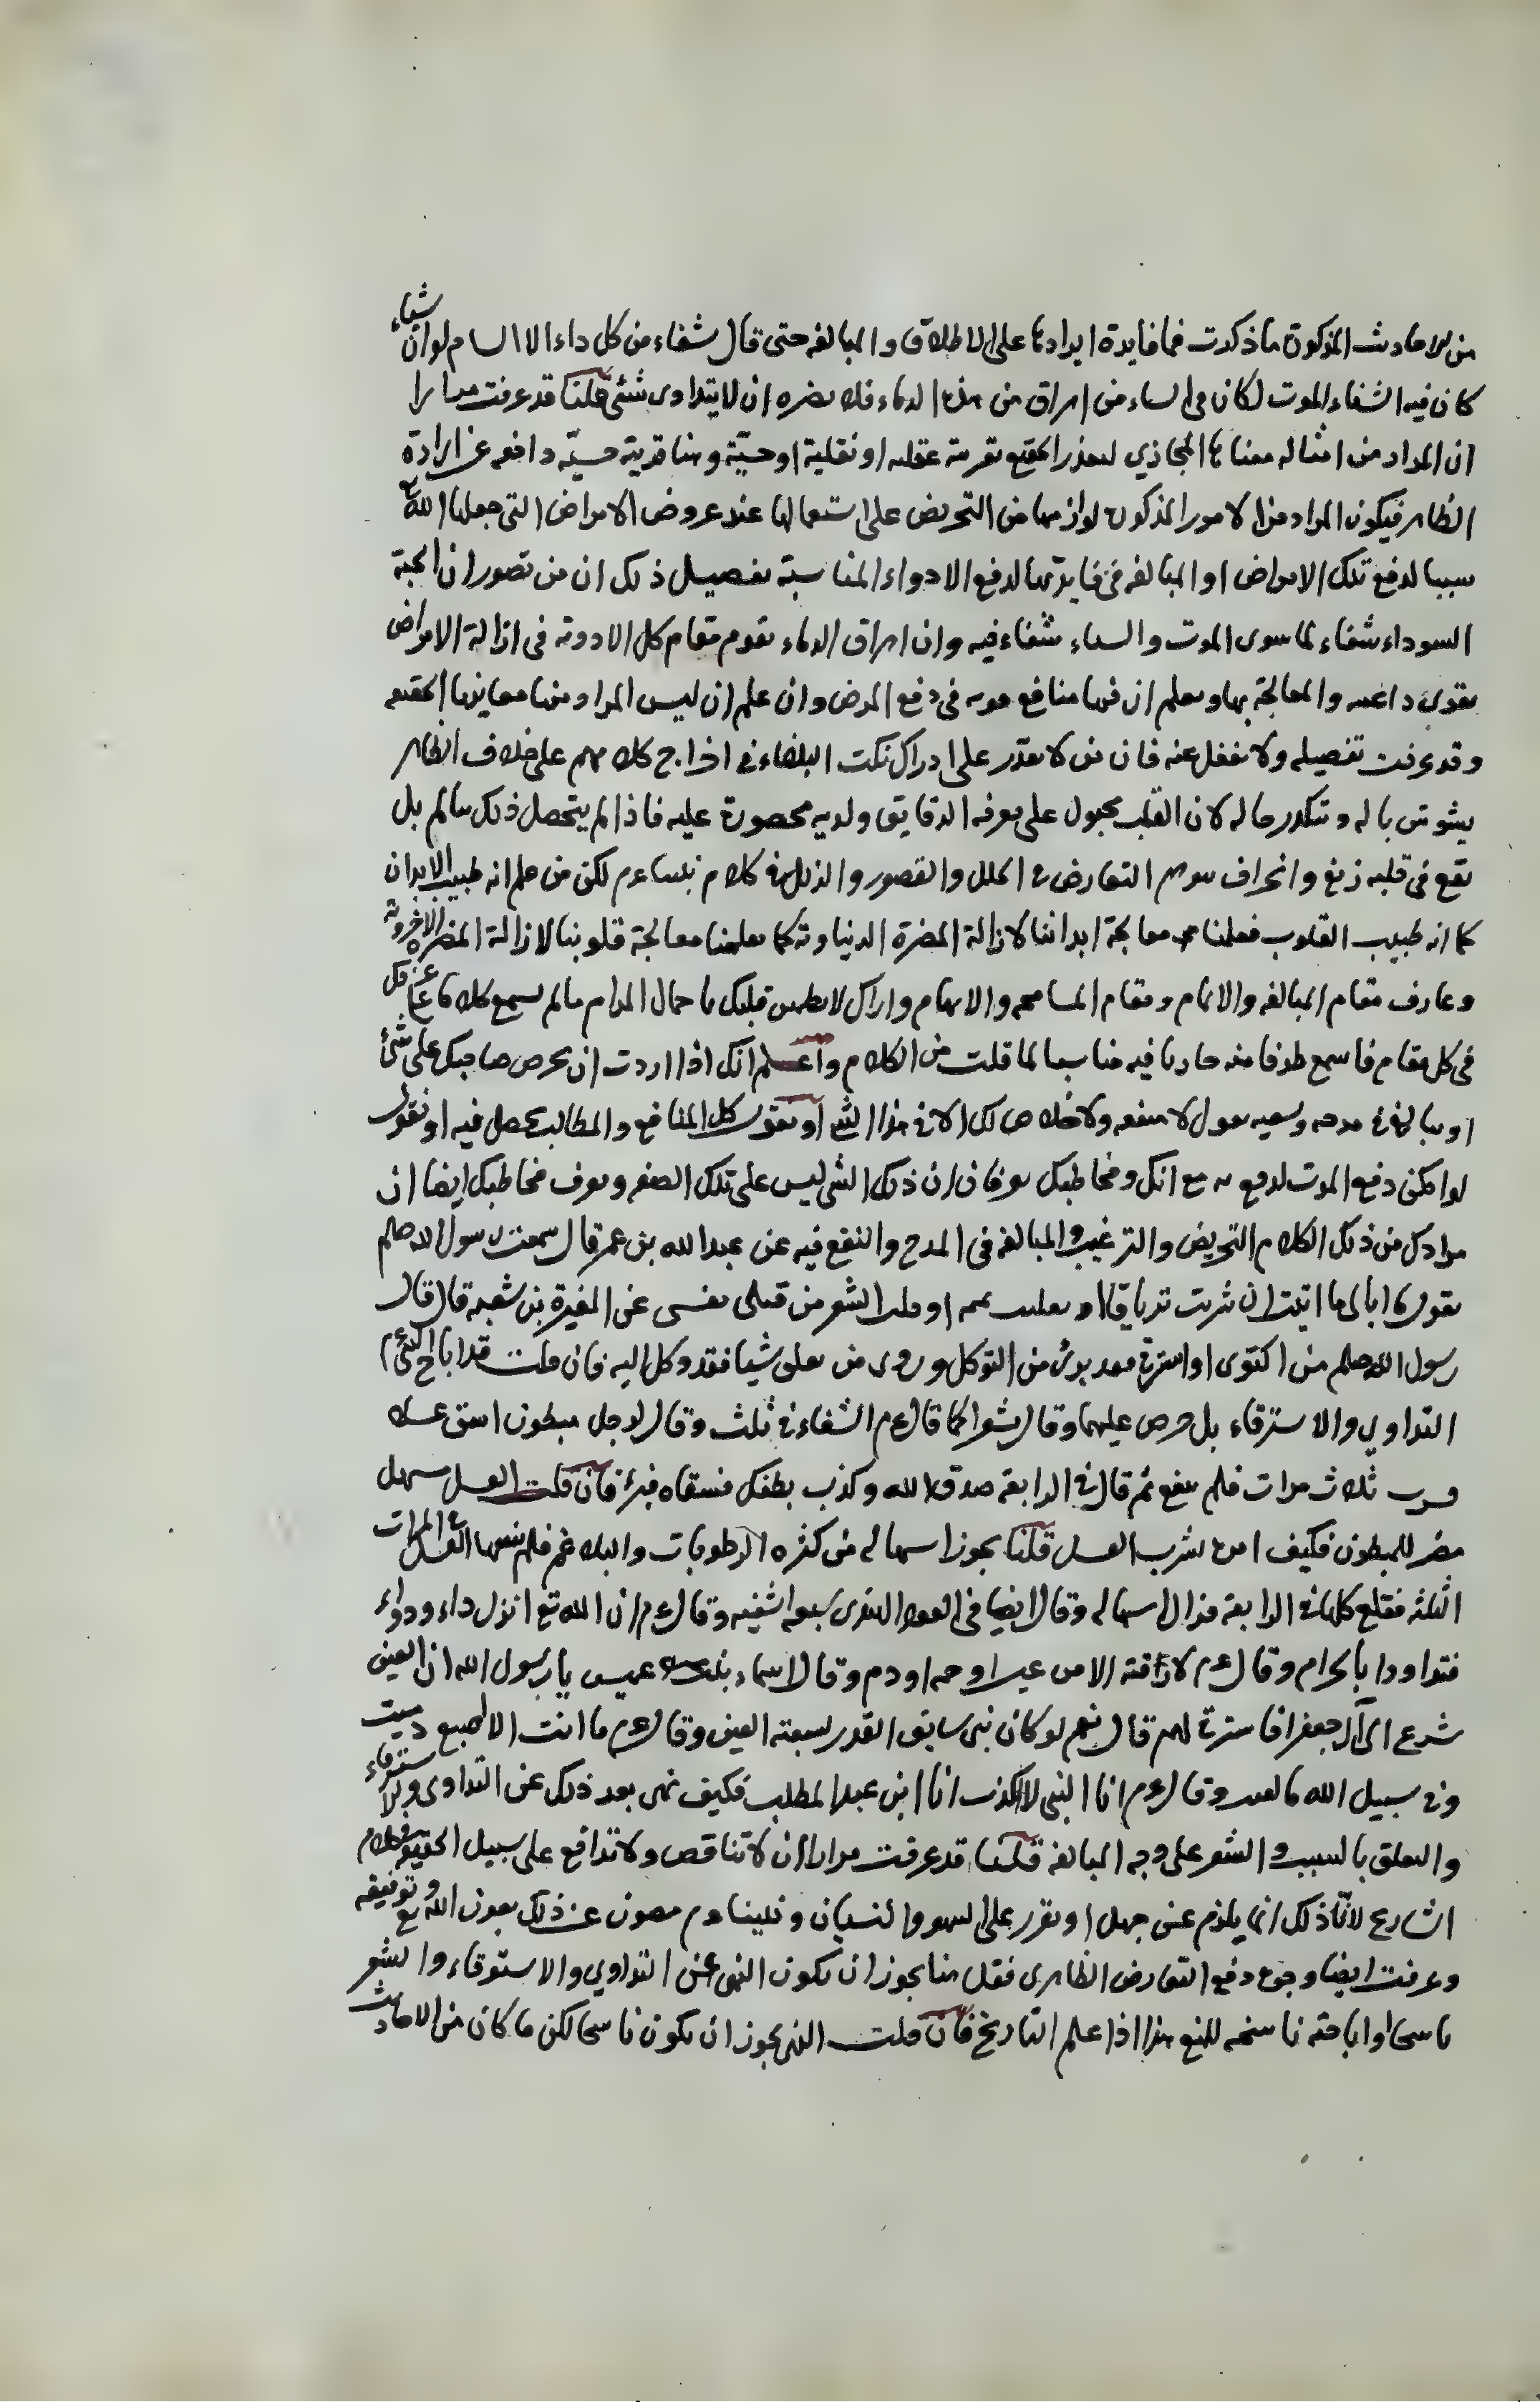 من الاحاديث المذكورة ما ذكرت فما فايدة ايرادها على الاطلاق والمبالغه حتى قال شفاء من كل داء الا السام لو ان شياء
كان فيه الشفاء الموت لكان في السناء من اهراق من هذه الدماء فلا يضره ان لا يتداوى بشئ قلنا قد عرفت مرارا
ان المراد من امثاله معناها المجازي لتعذر الحقيقي بقرينة عقليه او نقلية او حسيّة وهنا قرينة حسيّه دافعه عن ارادة
الظاهر فيكون المراد من الامور المذكورة لوازمها من التحريض على استعمالها عند عروض الامراض التي جعلها الله تع
سببا لدفع تلك الامراض او المبالغه في فايدتها لدفع الادواء المناسبة تفصيل ذلك ان من تصور ان الحبة
السوداء شفاء لما سوى الموت والسناء شفاء فيه وان اهراق الدماء يقوم مقام كل الادوية في ازالة الامراض
يقوى داعيه والمعالجة بها ويعلم ان فيها منافع قويه في دفع المرض وان علم ان ليس المراد منها معاينها الحقيقه
وقد عرفت تفصيله ولا تغفل عنه فان من لا يقدر على ادراك نكت البلغاء في اخراج كلامهم على خلاف الظاهر
يشوش باله وتتكدر حاله لان القلب مجبول على معرفه الدقايق ولديه محصورة عليه فاذا لم يتحصل ذلك سالم بل
يقع في قلبه زيغ وانحراف بتوهم التعارض في الخلل والقصور والذلل في كلام نبينا ءم لكن من علم انه طبيب الابدان
كما انه طبيب القلوب فعلمنا معالجة ابداننا لازالة المضرة الدنياوية كما يعلمنا معالجة قلوبنا لازالة المضره الاخروية
وعارف مقام المبالغه والاتمام ومقام المسامحه والابهام واراك لا يطمئن قلبك باحمال المرام ما لم يسمع كلاما عن كل
في كل مقام فاسمع طرفا منه حاربا فيه مناسبا لما قلت من الكلام واعلم انك اذا اردت ان تحرص صاحبك على شئ
او تبالغ في مدحه وسعيه تقول لا منفعه ولا خلاص لك الا في هذا الشئ او تقول كل المنافع والمطالب تحصل فيه او تقول
لو امكن دفع الموت لدفع به مع انك ومخاطبك تعرفان ان ذلك الشي ليس على تلك الصفه ويعرف مخاطبك ايضا ان
مرادك من ذلك الكلام التحريض والترغيب والمبالغه في المدح والنفع فيه عن عبد الله بن عمر قال سمعت رسول الله صلم
يقول ما ابالى ما اتيت ان شربت ترياقا او تعلقت تميمه او قلت الشعر من قبلى نفسى عن المغيرة بن شعبه قال قال
رسول الله صلم من اكتوى او استرق فقد برئ من التوكل وروى من تعلق شيا فقد وكل اليه فان قلت قد اباح النبي ءم
التداوي والاسترقاء بل حرص عليهما وقال شعرا كما قال ءم الشفاء في ثلث وقال لرجل مبطون اسق عسلا
فشرب ثلاث مرات فلم ينفع ثم قال في الرابعة صدق الله وكذب بطنك فسقاه فبرئ فان قلت العسل سهل
مضر للمبطون فكيف امره بشرب العسل قلنا يجوز اسهاله من كثره الرطوبات والبلاغم فلم ينفعها العسل في المرات
الثلثه فقلع كلها في الرابعة فزال اسهاله وقال ايضا في العود الهندي سبعه اشفيه وقال ءم ان الله تع انزل داء ودواء
فتداووا بالحرام وقال ءم لا رقية الا من عين او حمه او دم وقال اسماء بنت عميس يا رسول الله ان العين
تسرع الى آل جعفر افاسترق لهم قال نعم لو كان شي سابق القدر لسبقته العين وقال ءم ما انت الا اصبع دميت
وفي سبيل الله ما لقيت وقال ءم انا النبي لا كذب انا ابن عبد المطلب فكيف نهى بعد ذلك عن التداوى والاسترقاء
والتعلق بالسبب والشعر على وجه المبالغه قلنا قد عرفت مرارا ان لا تناقص ولا تدافع على سبيل الحقيقه في كلام
الشارع لانّ ذلك انما يلزم عن جهل او تقرر على السهو والنسيان ونبينا ءم مصون عن ذلك بعون الله تع وتوفيقه
وعرفت ايضا وجوه دفع التعارض الظاهرى فقل هنا يجوز ان يكون النهى عن التداوي والاسترقاء والشعر
ناسخا او اباحته ناسخه للمنع هذا اذا علم التاريخ فان قلت النهى يجوز ان يكون ناسخا لكن ما كان من الاحاديث